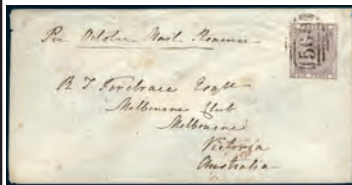 Per October Mail Steamer
R T Firebrace Esqre
Melbourne Club
Melbourne
Victoria
Australia